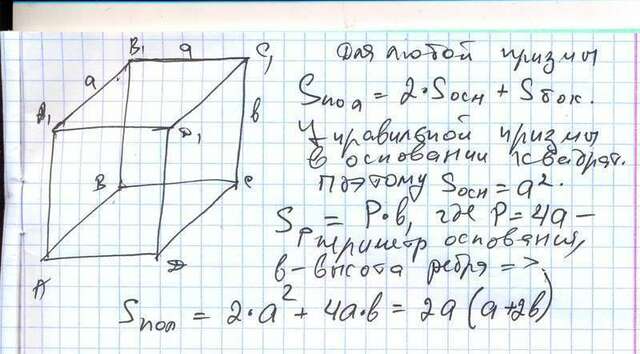 B₁ a C₁
a
A₁ D₁ в
B C
A D
Для любой призмы
Sпол = 2·Sосн + Sбок.
У правильной призмы
в основании квадрат.
Поэтому Sосн = a².
S = P·в, где P = 4a –
периметр основания,
в – высота ребра =>
Sпол = 2·a² + 4a·в = 2a(a+2в)